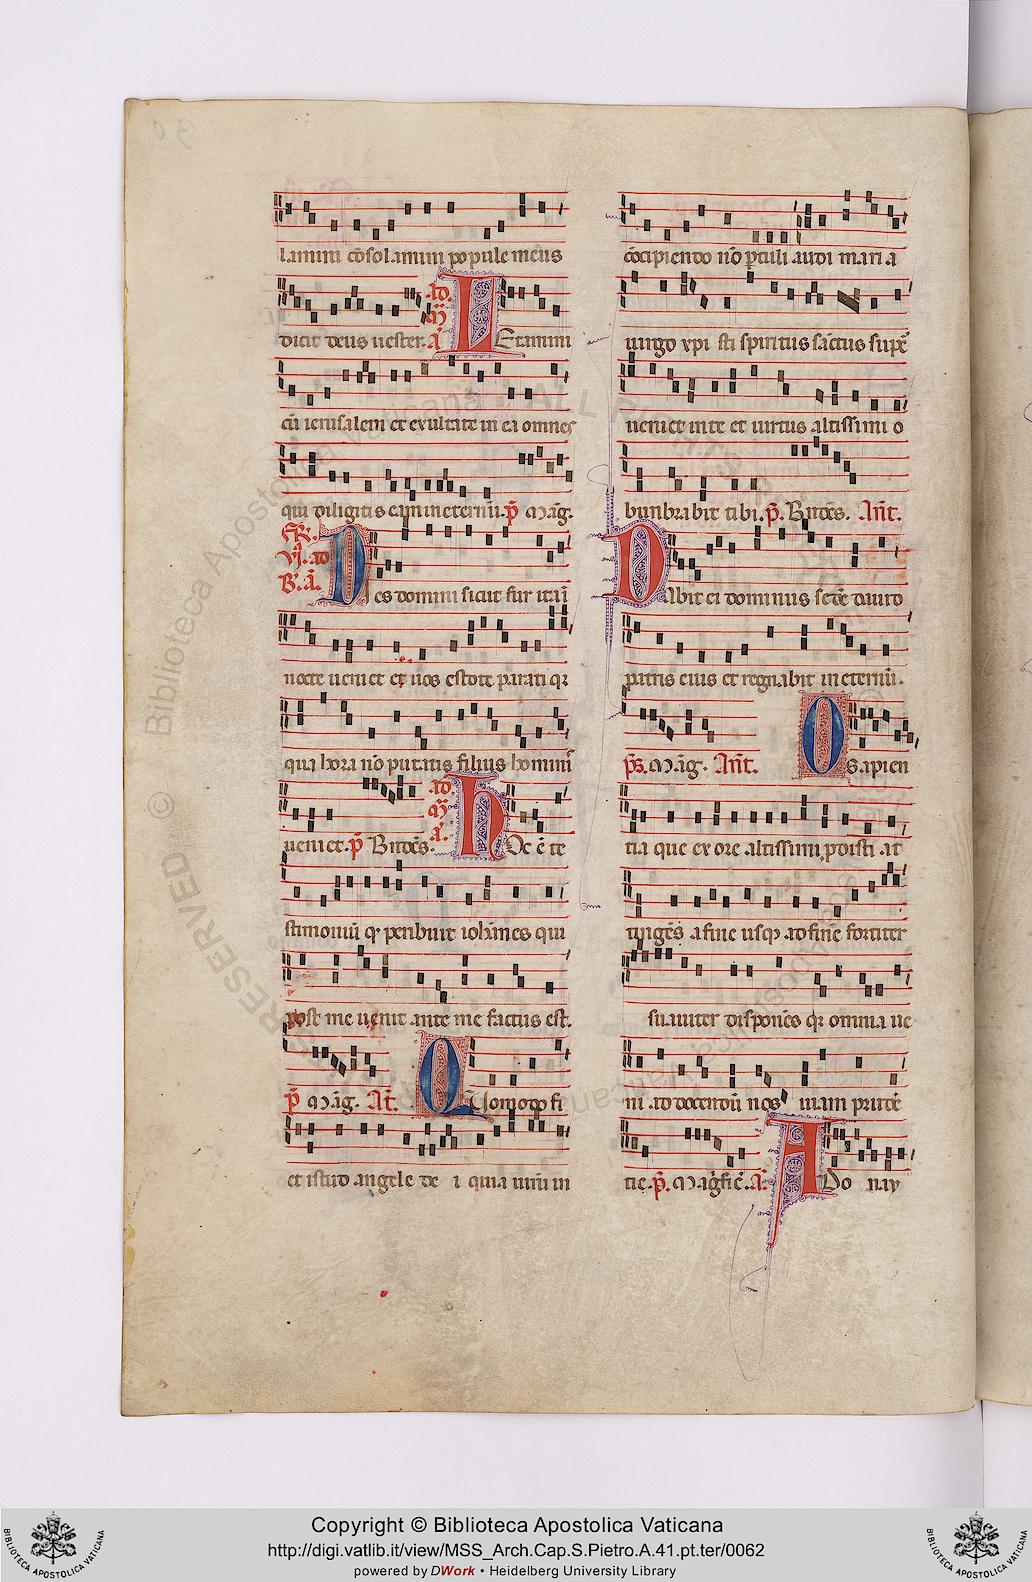 lamini cōsolamini popule meus
dicit deus uester. ad
m̄
A̅ Letamini
cū ierusalem et exultate in ea omnes
qui diligitis eam in eternū. p̄ Mag̅.
Fr̅.
VJ. ad
B. a̅. Dies domini sicut fur ita ī
nocte ueniet et uos estote parati qr
qua hora nō putatis filius hominis
ueniet. p̄ Bn̄dc̄s. ad
m̄
a̅. Hoc ē te
stimoniū qḋ peribuit ioħannes qui
post me uenit ante me factus est.
p̄ Mag̅. An̄t. Quomodo fi
et istud angele dei quia uirū in
cōcipiendo nō ꝑtuli audi maria
uirgo xpi sti spiritus sanctus supē
ueniet in te et uirtus altissimi o
bunbrabit tibi. p̄. Bn̄dc̄s. An̄t.
Dabit ei dominus sedē dauid
patris eius et regnabit in eternū.
p̄s. Mag̅. An̄t. O sapien
tia que ex ore altissimi ꝓdisti at
tingēs a fine usqꝫ ad finē fortiter
suauiter disponēs qꝫ omnia ue
ni ad docendū nos uiam prudē
tie. p̄. Magn̄fic̄. A̅. Ado nay
RESERVED © Biblioteca Apostolica Vaticana ALL RIGHTS RESERVED © Biblioteca Apostolica Vaticana
BIBLIOTECA APOSTOLICA VATICANA
Copyright © Biblioteca Apostolica Vaticana
http://digi.vatlib.it/view/MSS_Arch.Cap.S.Pietro.A.41.pt.ter/0062
powered by DWork • Heidelberg University Library
BIBLIOTECA APOSTOLICA VATICANA